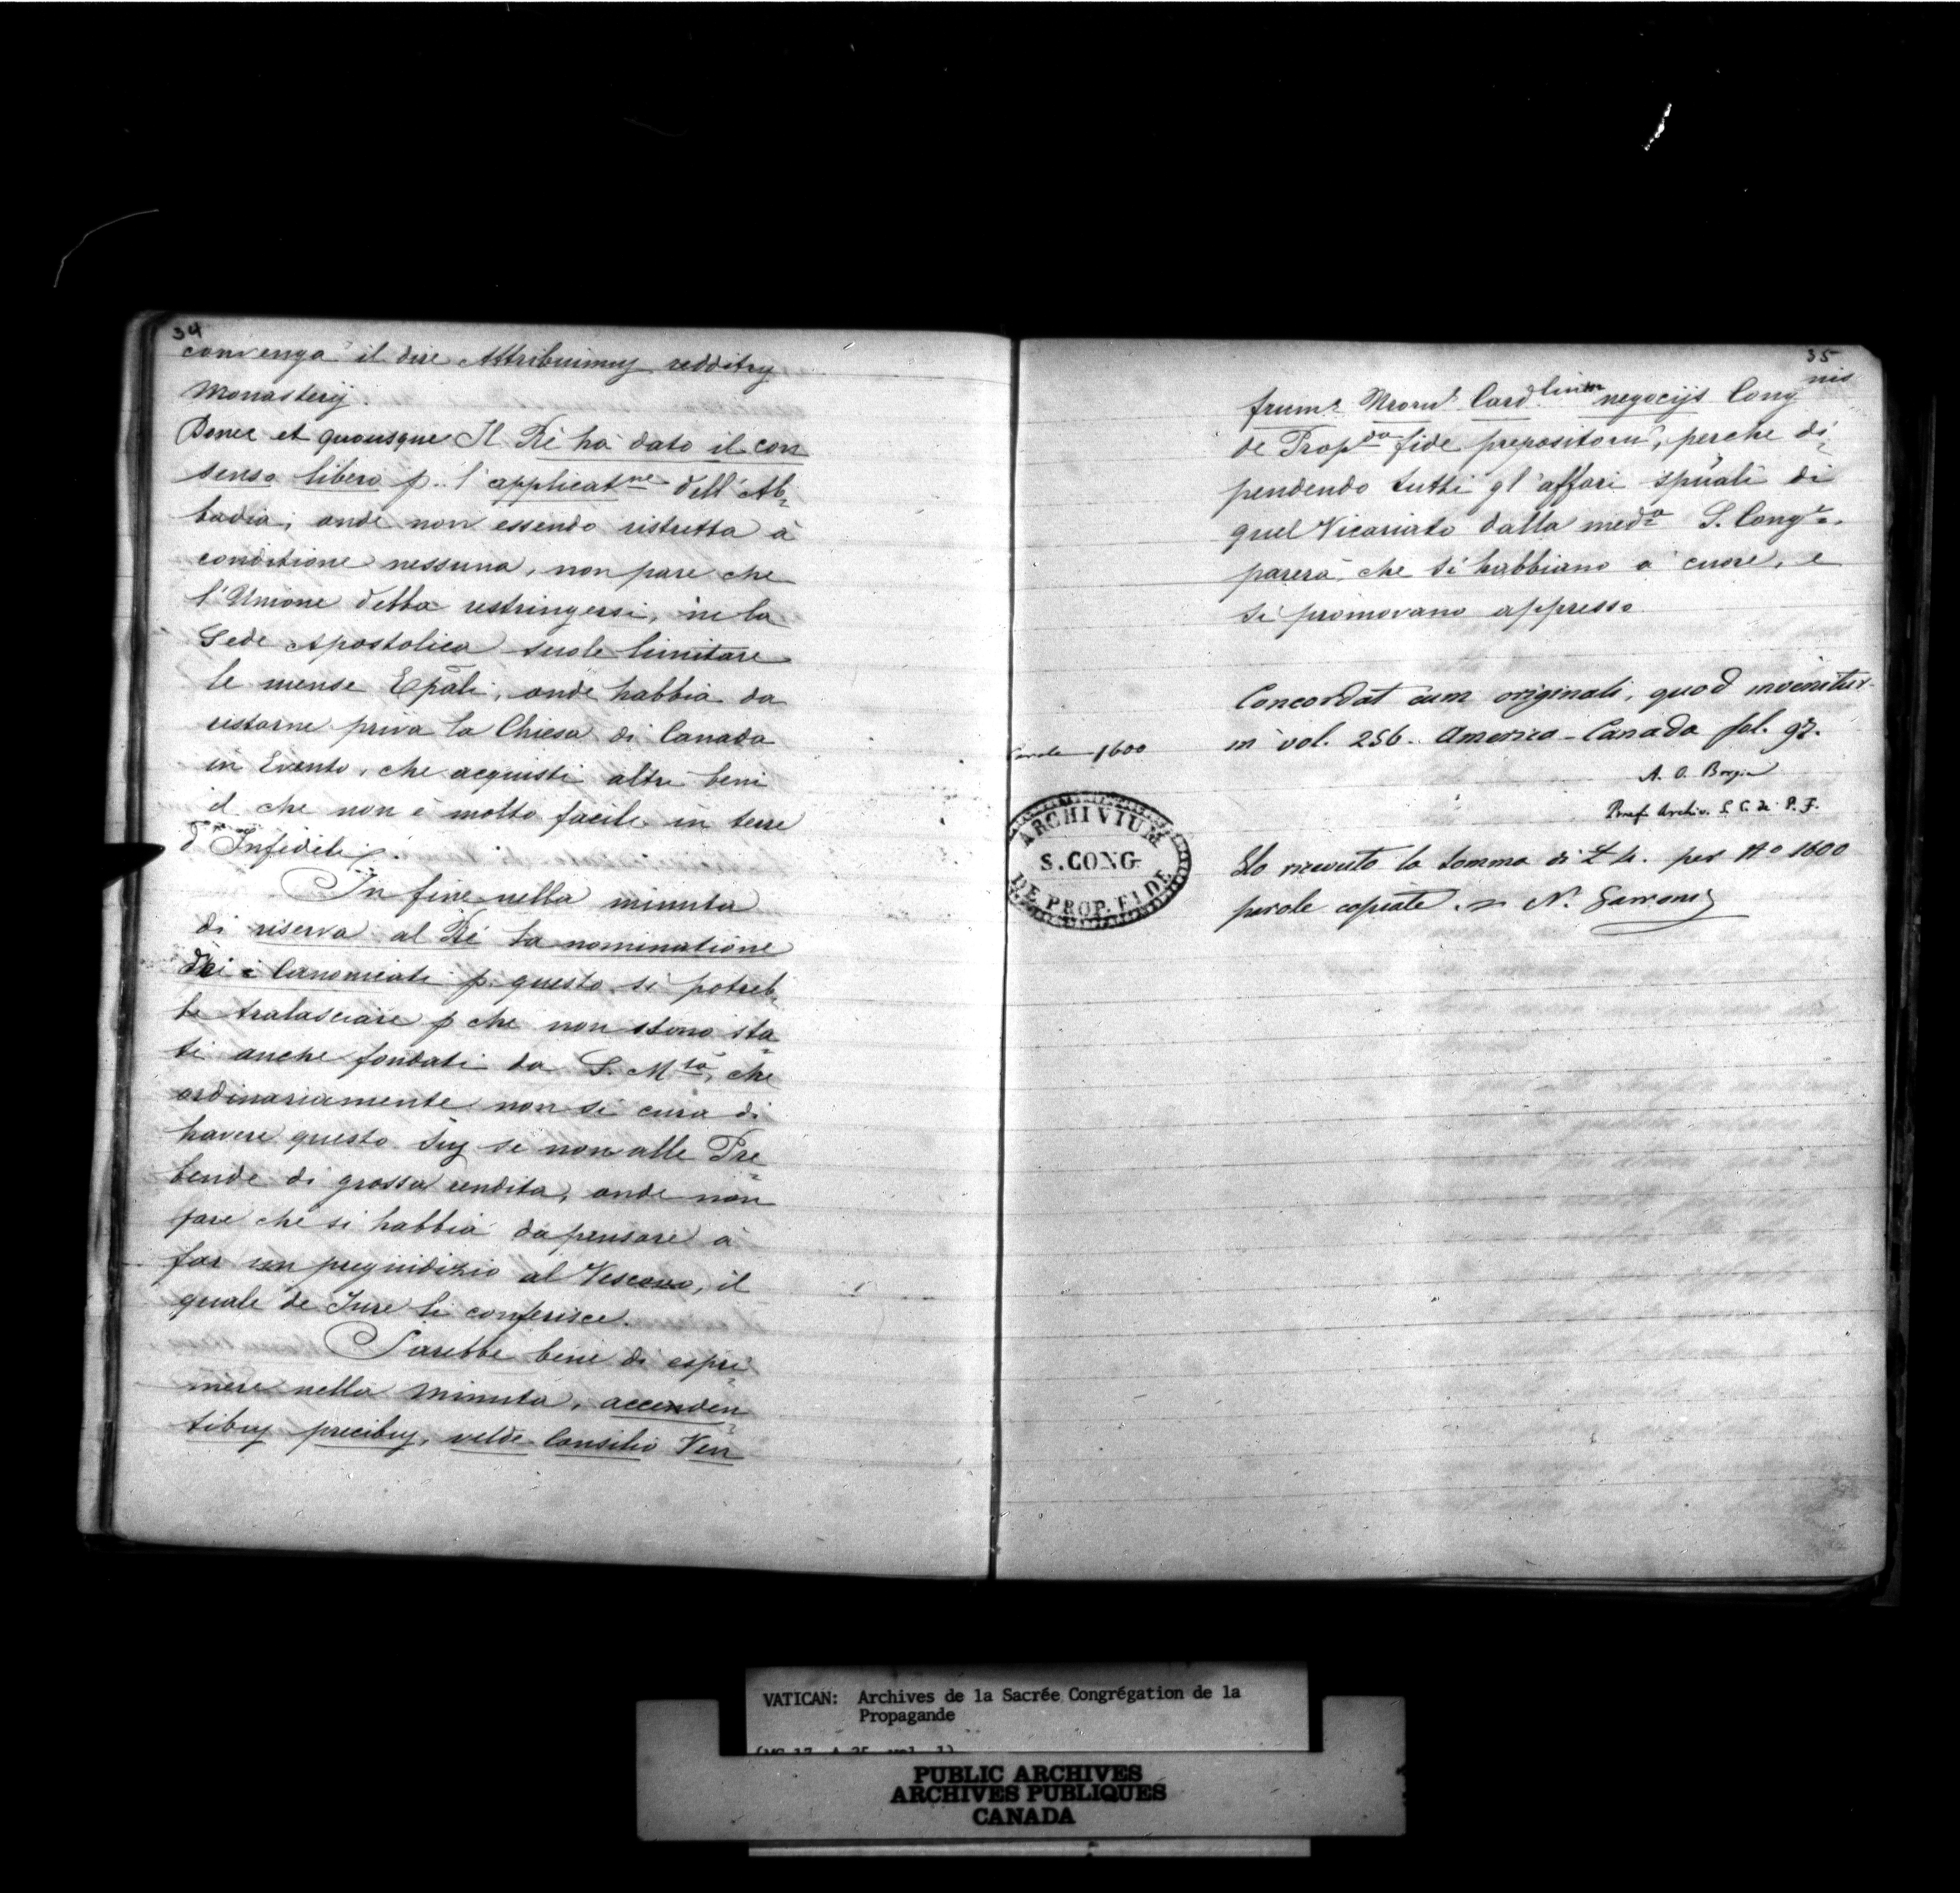 34
convenga il dire Attribuimus redditus
Monasterij.
Donec et quousque Il Rè hà dato il con
senso libero p. l'applicatne dell'Ab=
badia; onde non essendo ristretta à
conditione nessuna, non pare che
l'Unione debba restringersi, ne la
Sede Apostolica suole limitare
le mense Epāli, onde habbia da
restarne priva la Chiesa di Canada
in Evento, che acquisti altri beni
il che non è molto facile in terre
d'Infideli.
In fine nella minuta
di riserva al Rè la nominatione
dei Canonicati p. questo si potreb=
be tralasciare p che non sono sta=
ti anche fondati da S. Mtà, che
ordinariamente non si cura di
havere questo Jus se non alle Pre=
bende di grossa rendita, onde non
pare che si habbia da pensare à
far un pregiudizio al Vescovo, il
quale de Jure li conferisce.
Sarebbe bene di espri=
mere nella minuta, acceden=
tibus precibus, vel de Consilio Ven
35
frum. Nrorū Card.lium negocijs Congnis
de Propda fide prepositorū, perche di=
pendendo tutti gl'affari spūali di
quel Vicariato dalla meda S. Congne.
parerà, che si habbiano à cuore, e
si promovano appresso
Concordat cum originali, quod invenitur
in vol. 256. America-Canada fol. 92.
Parole 1600
A. O.
Praef. Archiv. S. C. de P. F.
ARCHIVIUM
S. CONG
DE PROP. FIDE
Ho ricevuto la somma di £ 4. per No 1600
parole copiate. N.
VATICAN: Archives de la Sacrée Congrégation de la
Propagande
(MG 17, A 25, vol. 1)
PUBLIC ARCHIVES
ARCHIVES PUBLIQUES
CANADA